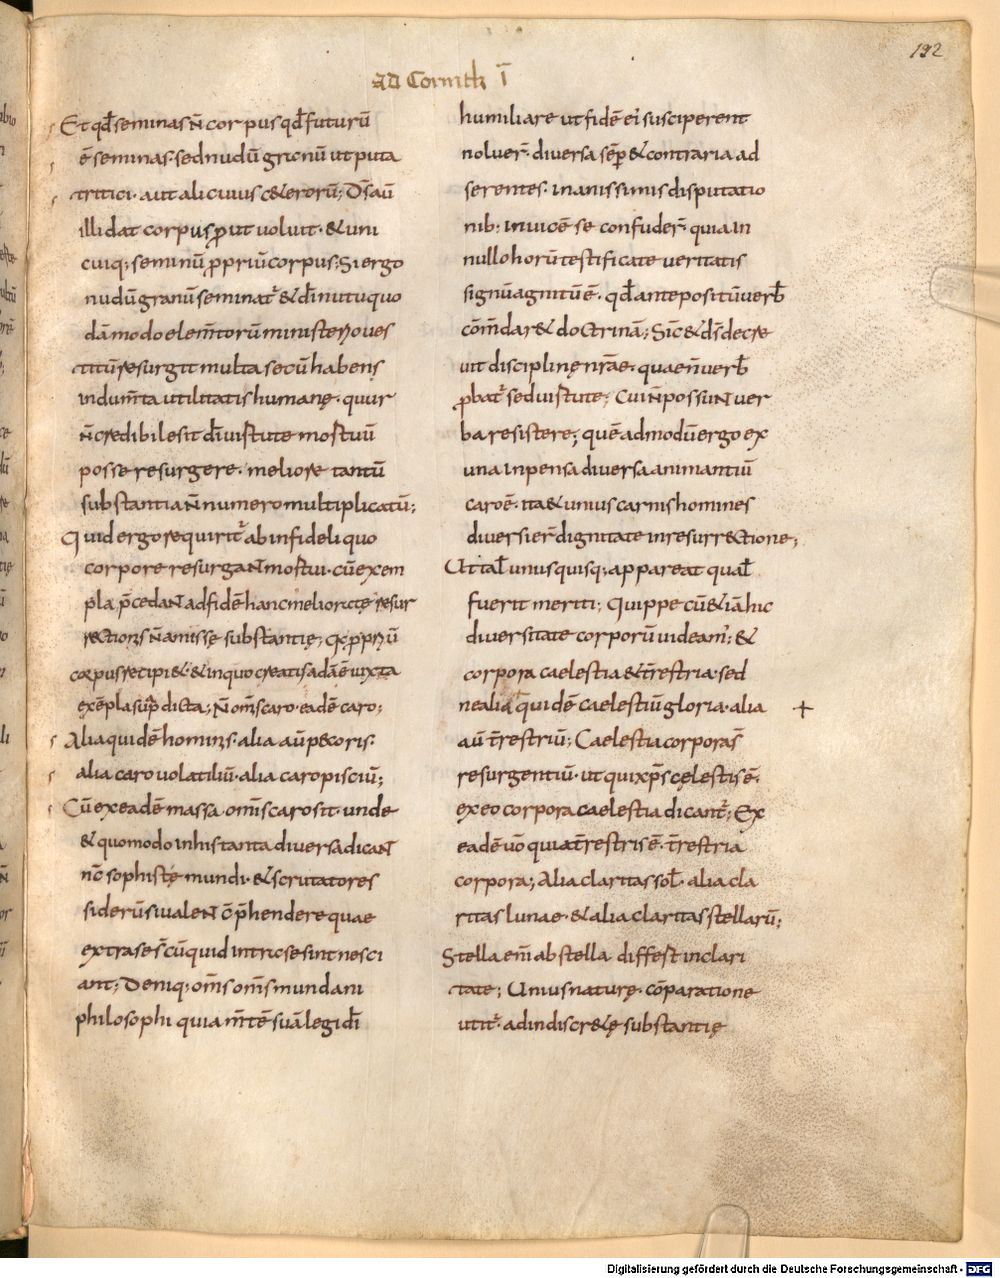 192
AD Corinth I
Et qđ seminas ñ corpus qđ futurū
ē seminas. sed nudū granū ut puta
tritici. aut alicuius c&erorū; D̄s aū
illi dat corpus ꝓut uoluit. & uni
cuiq; seminū ꝓpriū corpus; Si ergo
nudū granū seminat̄ & dī nutu quo
dāmodo elem̄torū ministerio ues
titū resurgit multa secū habens
indum̄ta utilitatis humanę. quur
ñ credibile sit dī uirtute mortuū
posse resurgere. meliore tantū
substantia ñ numero multiplicatū;
Quid ergo requirit̄ ab infideli quo
corpore resurgaNt mortui. cū exem
pla p̄cedaNt ad fidē hanc meliorate resur
rectionis ñ amissę substantię; ꝓpriū
corpus recipi& & in quo creatis adā ē iuxta
exēpla sup̄ dicta; Ñ om̄s caro. eadē caro;
Alia quidē hominis. alia aū pecoris.
alia caro uolatiliū. alia caro pisciū;
Cū ex eadē massa. om̄s caro sit. unde
& quomodo in his tanta diuersa dicaNt
nc̄ sophistę mundi. & scrutatores
siderū si ualeNt cōp̄hendere quae
extra se s̄ cū quid intra se sint nesci
ant; Deniq; om̄s om̄s mundani
philosophi quia m̄tē suā legi dī
humiliare ut fidē ei susciperent
noluer̄. diuersa sēp & contraria ad
serentes. inanissimis disputatio
nib; inuicē se confuder̄. quia in
nullo horū testificate ueritatis
signū agnitū ē. qđ ante positū uerb̄
cōm̄dar& doctrinā; Sic & d̄s decre
uit disciplinę nr̄ae. quae ñ uerb̄
ꝓbat̄ sed uirtute; Cui ñ possuNt uer
ba resistere; quēadmodū ergo ex
una inpensa diuersa animantiū
caro ē. ita & unius carnis homines
diuersi er̄ dignitate in resurrectione;
Ut tal̄ unusquisq; appareat qual̄
fuerit meriti; Quippe cū & iā hic
diuersitate corporū uideam̄; &
corpora caelestia & t̄restria. sed
ne alia quidē caelestiū gloria. alia +
aū t̄restriū; Caelestia corpora s̄
resurgentiū. ut qui xp̄s cęlestis ē.
ex eo corpora caelestia dicant̄; Ex
eadē uō quia t̄restris ē. t̄restria
corpora; Alia claritas sol̄. alia cla
ritas lunae. & alia claritas stellarū;
Stella em̄ ab stella differt in clari
tate; Unius naturę. cōparatione
utit̄. ad indiscr&ę substantię
Digitalisierung gefördert durch die Deutsche Forschungsgemeinschaft - DFG